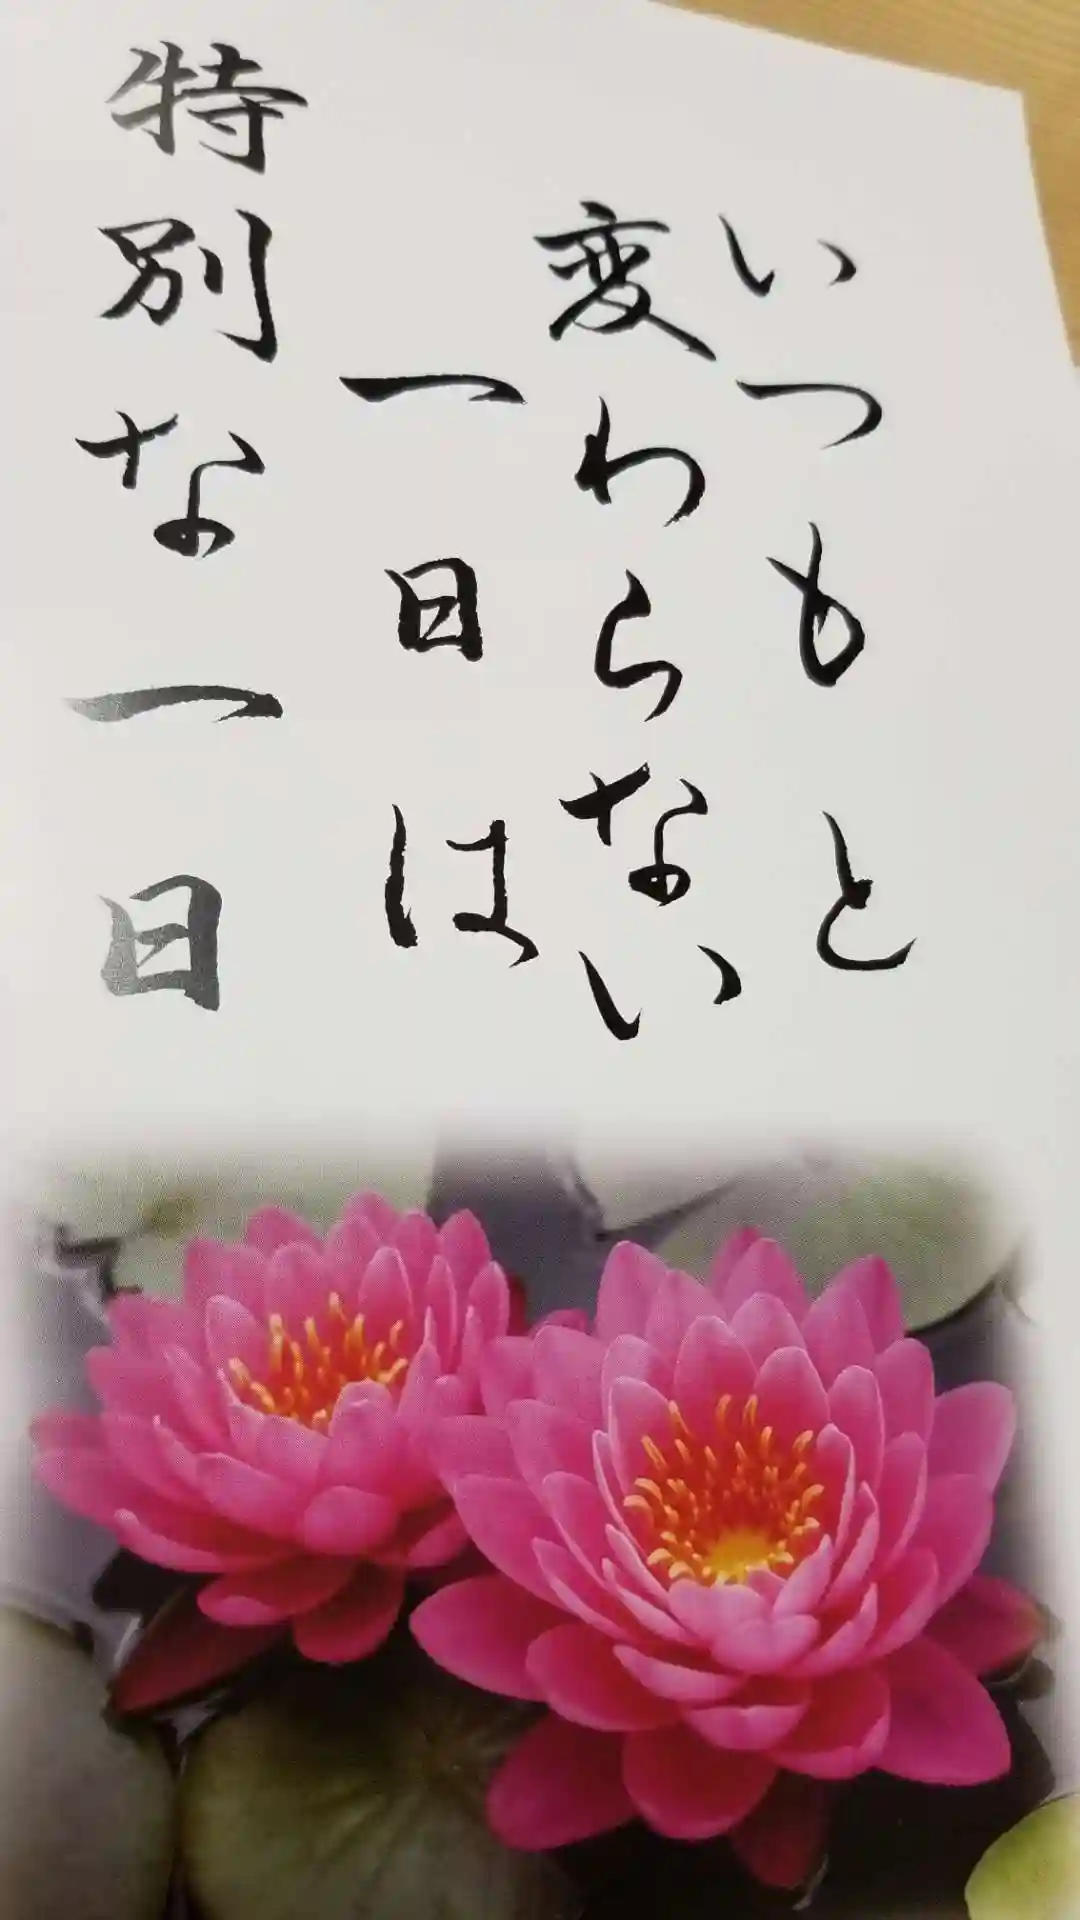 いつもと
変わらない
一日は
特別な一日